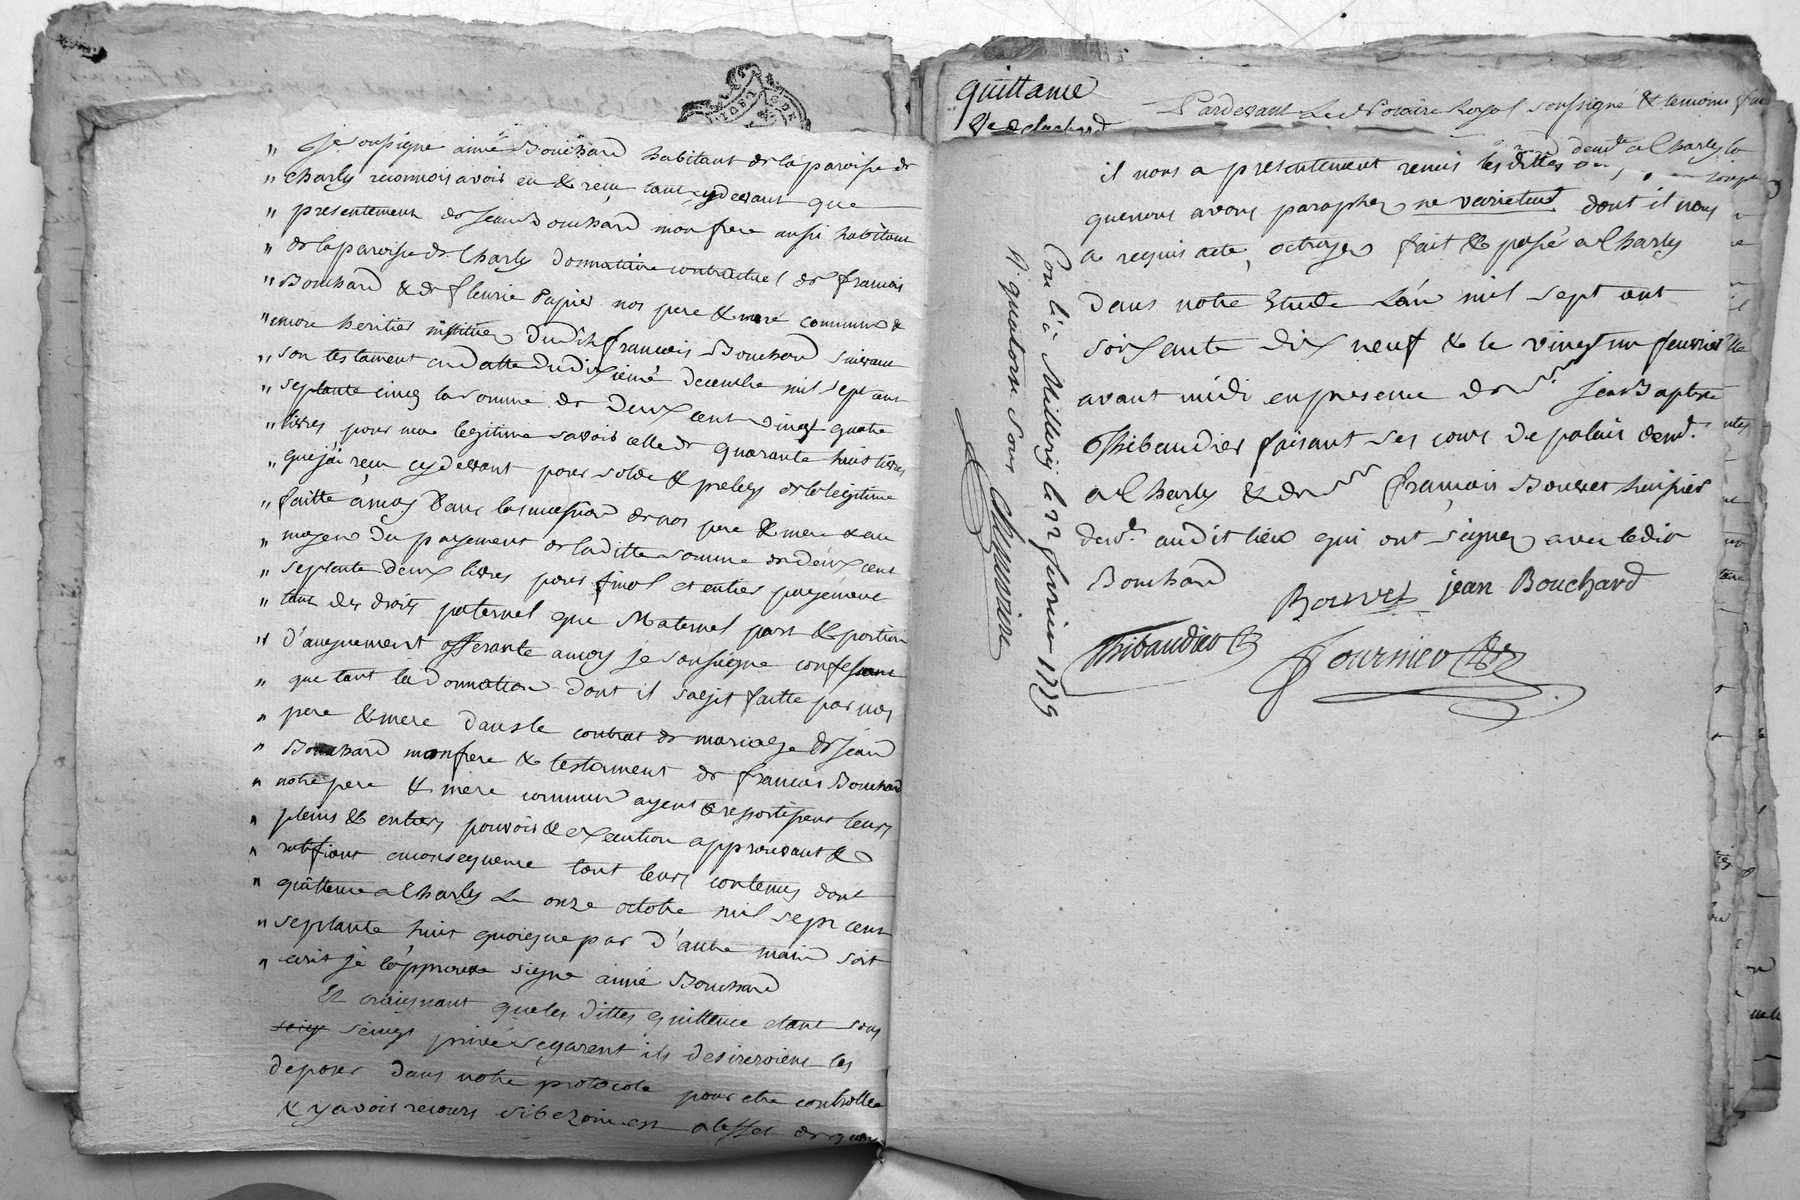 " Je soussigné aimé Bouchard habitant de la paroisse de
" Charly reconnois avoir eu & reçu tant cydevant que
" presentement de Jean Bouchard mon frere aussi habitant
" de la paroisse de Charly donnataire contractuel de francois
" Bouchard & de fleurie papier nos pere & mere communs &
" encore heritier institué dudit francois Bouchard suivant
" son testament en datte du dixieme decembre mil sept cent
" septante cinq la somme de deux cent vingt quatre
" livres pour ma legitime savoir celle de quarante huit livres
" que j'ai reçu cydevant pour solde & prelegs de la legitime
" faitte a moy dans la succession de nos pere & mere & au
" moyen du payement de la ditte somme de deux cent
" septante deux livres pour final et entier payement
" tant des droits paternel que Maternel part & portion
" d'augnement afferante a moy je soussigné confessant
" que tant la donnation dont il s'agit faitte par nos
" pere & mere dans le contrat de mariage de Jean
" Bouchard mon frere & testament de francois Bouchard
" notre pere & mere commun ayent & ressortissent leurs
" pleins & entiers pouvoir & execution approuvant &
" ratifiant en consequence tout leurs contenus dont
" quittance a Charly Le onze octobre mil sept cent
" septante huit quoique par d'autre main soit
" ecrit je l'approuve signé aimé Bouchard
Et craignant que les dittes quittance etant sous
seig seings privé segarent ils desireroient les
deposer dans notre protocole pour etre controllee
& y avoir recours si bezoin est a l'effet de quoy
quittance
Pardevant Le Notaire Royal soussigné & temoins
demt a Charly
il nous a presentement remis les dittes
que nous avons paraphez ne varietur dont il nous
a requis acte, octroyez fait & passé a Charly
dans notre Etude L'an mil sept cent
soixante dix neuf & le vingt un fevrier
avant midi en presence de Sr Jean Baptiste
Thibaudier faisant ses cours de palais demt
a Charly & de Sr francois Bouvet huissier
demt audit lieu qui ont signez avec ledit
Bouchard
Bouvet jean Bouchard
Thibaudier
Fournier
Con lé a Millery le 25 fevrier 1779
R. quatorze sous